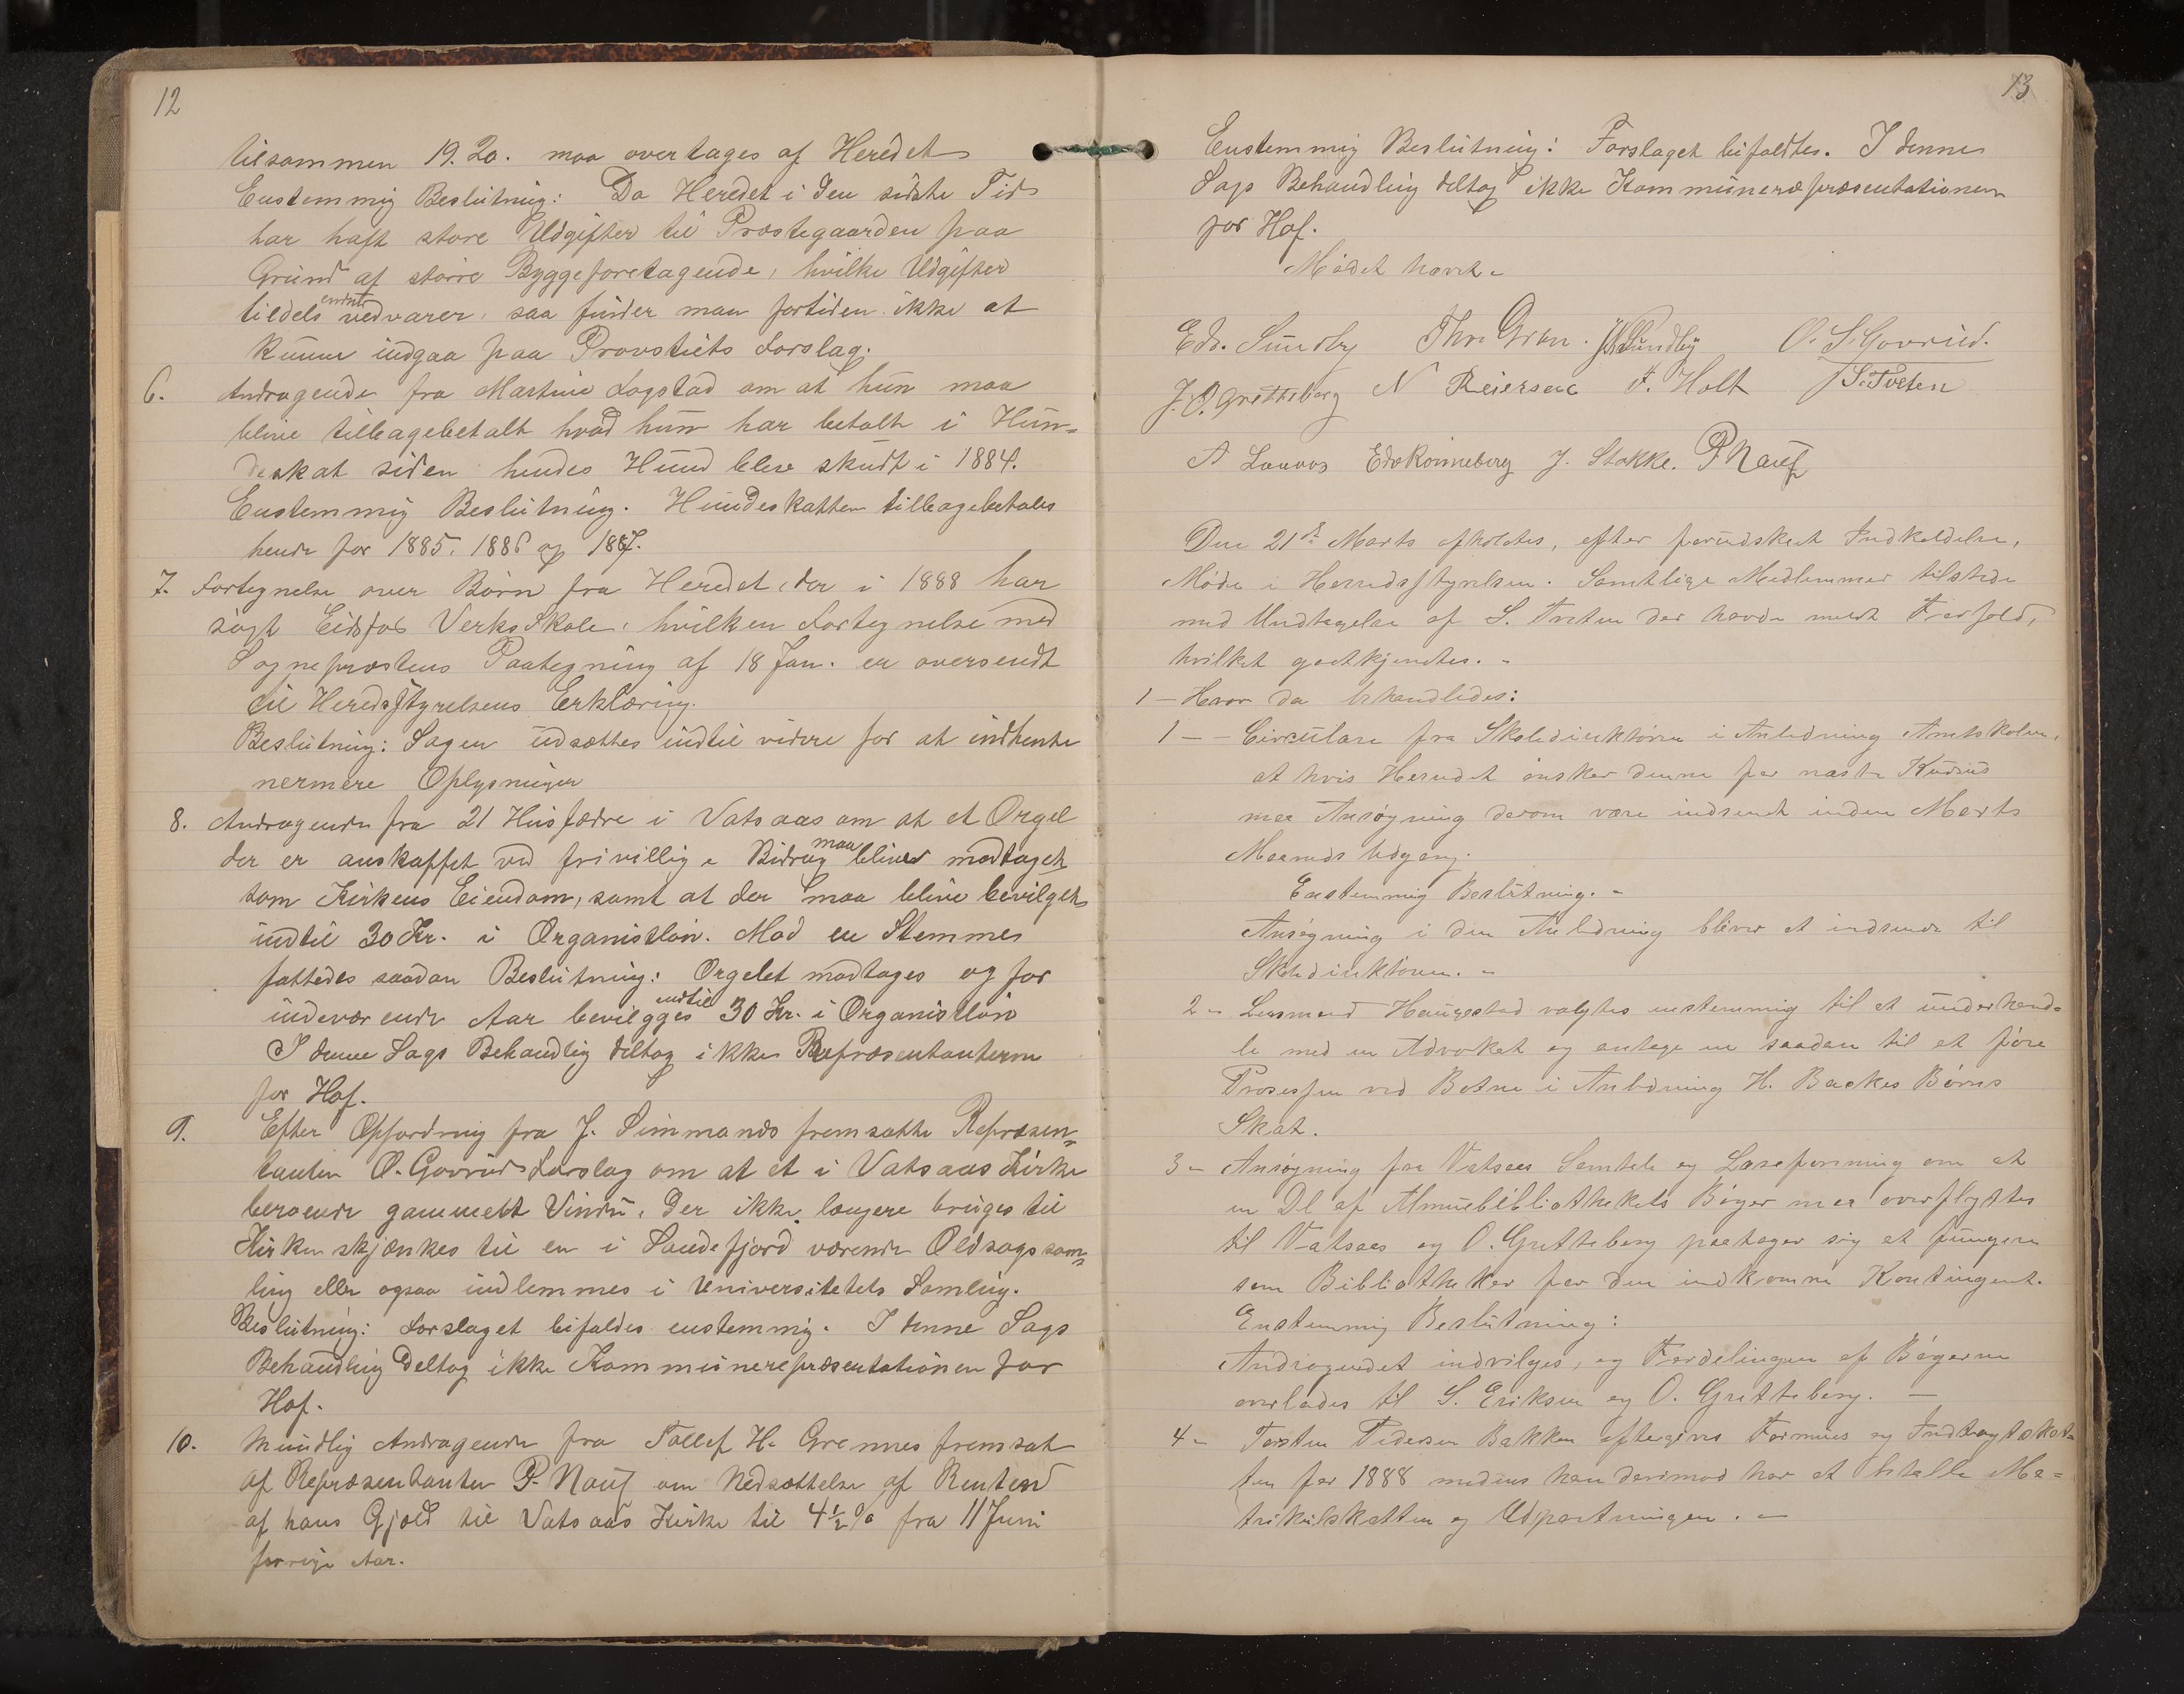 12
tilsammen 19.20. maa overtages af Heredet
Eenstemmig Beslutning: Da Heredet i den sidste Tid
har haft store Udgifter til Præstegaarden paa
Grund af större Byggeforetagende, hvilke Udgifter
tildels endnu vedvarer, saa finder man fortiden ikke at
kunne indgaa paa Provstiets Forslag.
6. Andragende fra Martine Fogstad om at hun maa
blive tilbagebetalt hvad hun har betalt i Hun=
deskat siden hendes Hund blev skudt i 1884.
Eenstemmig Beslutning. Hundeskatten tilbagebetales
hende for 1885. 1886 og 1887.
7. Fortegnelse over Børn fra Heredet, der i 1888 har
søgt Eidsfos Verks Skole, hvilken Fortegnelse med
Sognepræstens Paategning af 18 Jan. er oversendt
til Heredsstyrelsens Erklæring.
Beslutning: Sagen udsættes indtil videre for at indhente
nermere Oplysninger
8. Andragende fra 21 Husfædre i Vatsaas om at et Orgel
der er anskaffet ved frivillige Bidrag maa bliver modtaget
som Kirkens Eiendom, samt at der maa blive bevilget
indtil 30 Kr. i Organistløn. Mod en Stemmes
fattedes saadan Beslutning: Orgelet modtages og for
indeværende Aar bevilgges indtil 30 Kr. i Organistløn
I denne Sags Behandlig deltog ikke Repræsentanterne
for Hof.
9. Efter Opfordring fra J. Simmonds fremsatte Repræsen=
tanten O. Govrud Forslag om at et i Vatsaas Kirke
beroende gammelt Vindu, der ikke længere bruges til
Kirken skjænkes til en i Sandefjord værende Oldsagssam=
ling eller ogsaa indlemmes i Universitetets Samling.
Beslutning: Forslaget bifaldes eenstemmig. I denne Sags
Behandling deltog ikke Kommunerepræsentationen for
Hof.
10. Mundlig Andragende fra Tollef H. Grennes fremsat
af Repræsentanten P. Nauf om Nedsættelse af Renten
af hans Gjæld til Vatsaas Kirke til 4½ % fra 11 Juni
forrige Aar.
13
Eenstemmig Beslutning: Forslaget bifaldtes. I denne
Sags Behandling deltog ikke Kommunerepræsentationen
for Hof.
Mødet hævet.
Edv. Sundby Thv. Gran. Sundby O. S. Govrud.
J. O. Gretteberg N Reiersen F. Holt S. Tveten
A Edv Rønneberg J. Stokke. P Nauf
Den 21de Marts afholdtes, efter forudskeet Indkaldelse,
Møde i Herredsstyrelsen. Samtlige Medlemmer tilstede
med Undtagelse af S. Tveten der havde meldt Forfald,
hvilket godtkjendtes. -
1 - Hvor da behandledes:
1 - - Circulære fra Skoledirektøren i Anledning Amtskolen,
at hvis Herredet ønsker denne for næste Kursus
maa Ansøgning derom være indsendt inden Marts
Maaneds Udgang.
Enstemmig Beslutning. -
Ansøgning i den Anledning bliver at indsende til
Skoledirektøren. -
2 - Lensmand Haugestad valgtes enstemmig til at underhand=
le med en Advokat og antage en saadan til at føre
Prosessen ved Botne i Anledning H. Backes Børns
Skat.
3 - Ansøgning fra Vatsaas Samtale og Læseforening om at
en Del af Almuebibliothekets Bøger maa overflyttes
til Vatsaas og O. Gretteberg paatager sig at fungere
som Bibliothekar for den indkomne Kontingent.
Enstemmig Beslutning:
Andragendet indvilges, og Fordelingen af Bøgerne
overlades til S. Eriksen og O. Gretteberg. -
4 - Torsten Pedersen Bakken eftergives Formues og Indtægtsskat=
ten for 1888 medens han derimod har at betale Ma=
trikulskatten og Udpartningen. -